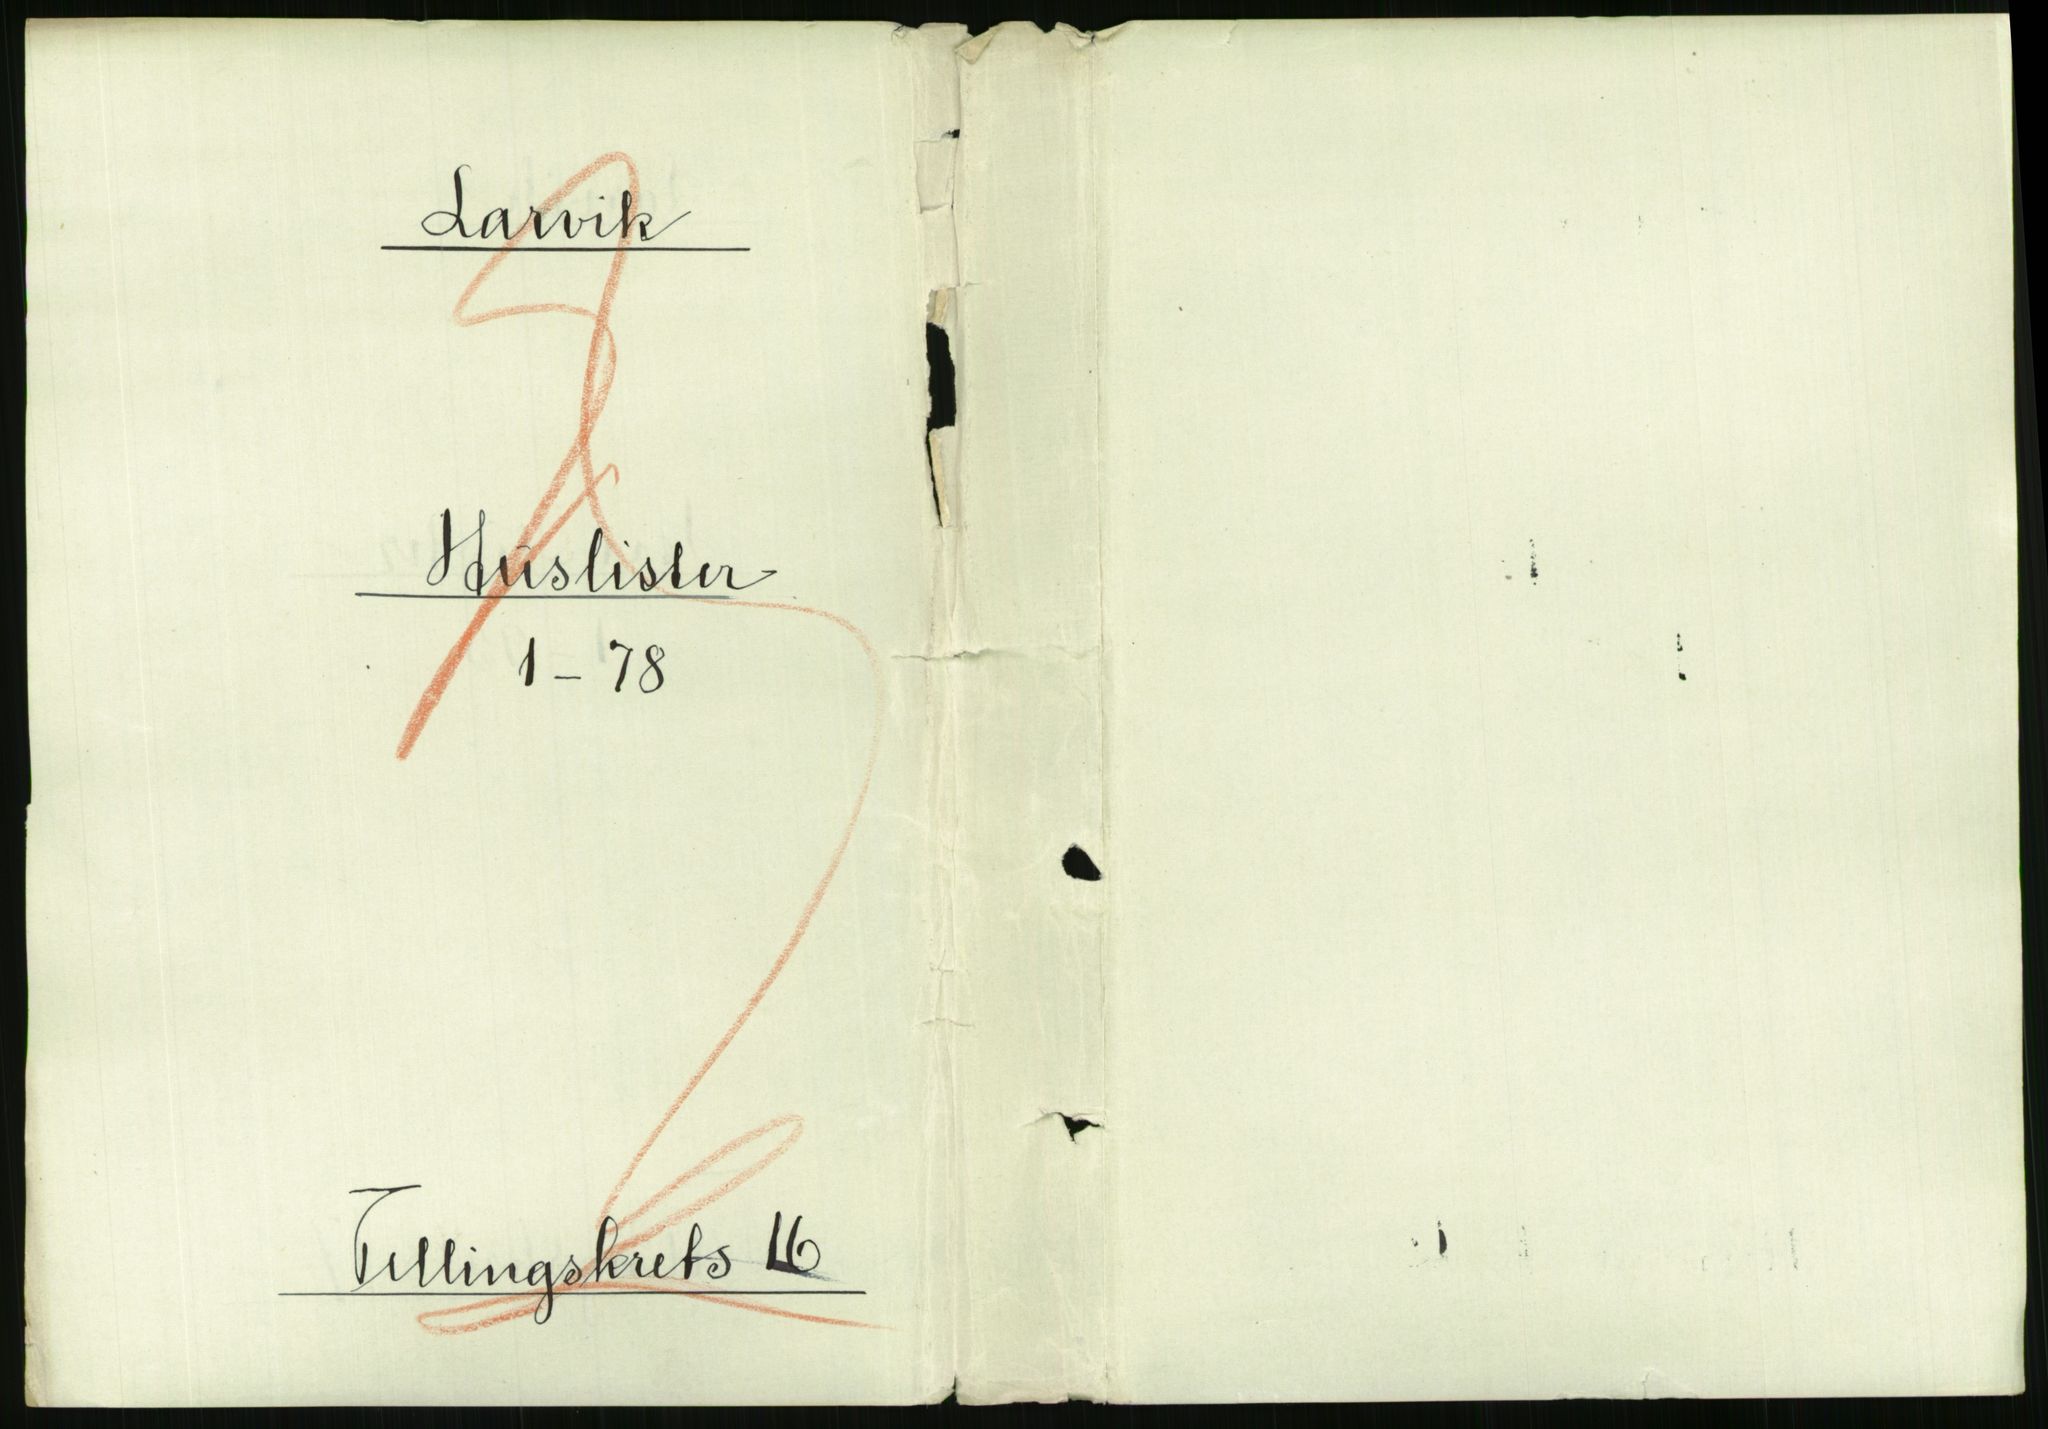 Larvik
Huslister
1 – 78
Tellingskrets 16